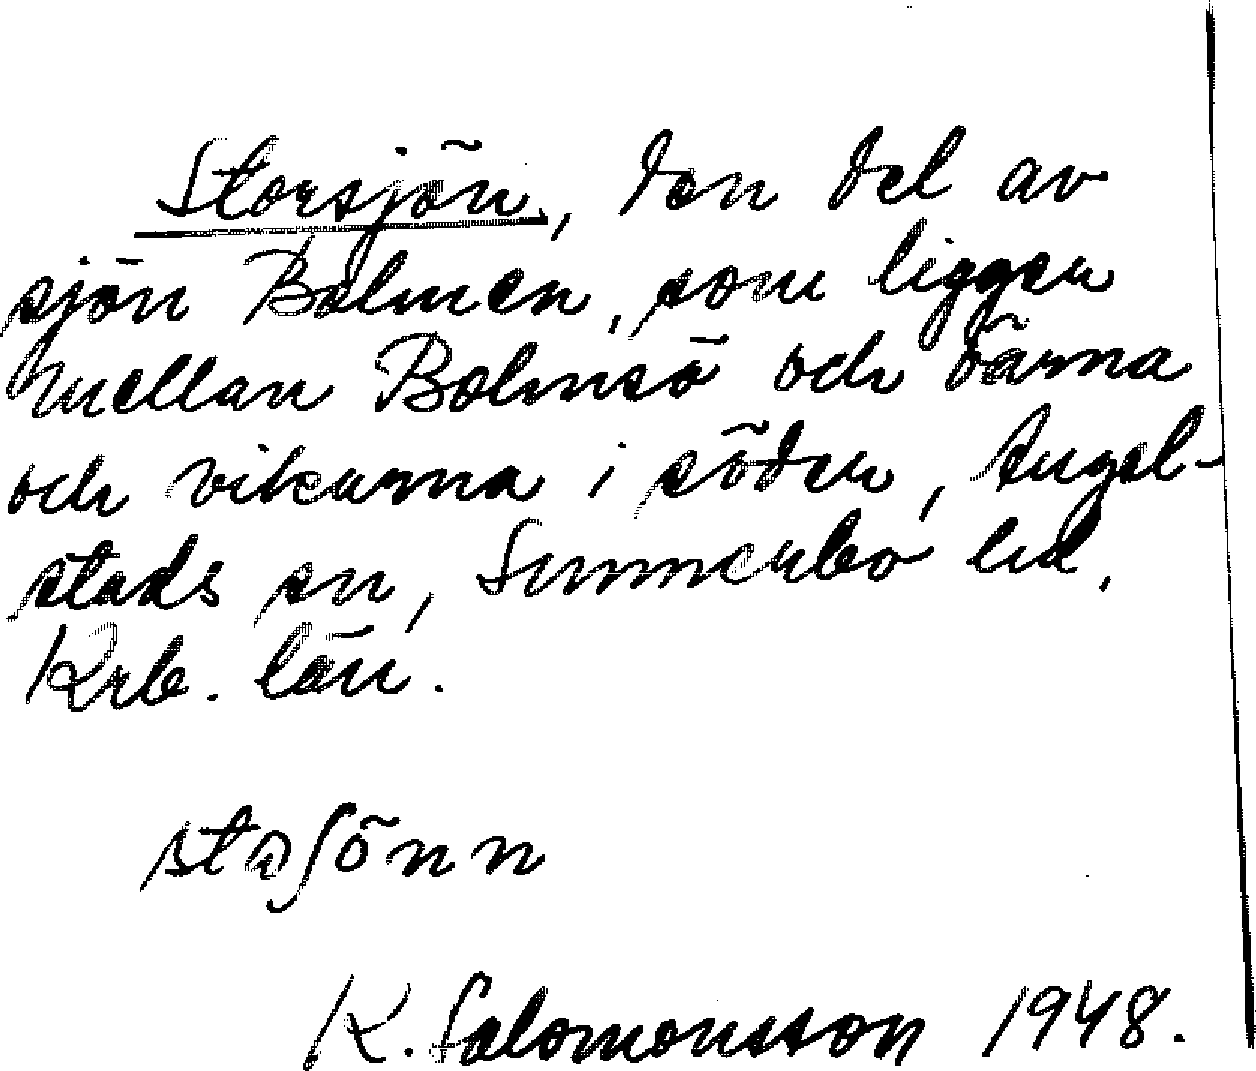 Storsjön, den del av
sjön Bolmen, som ligger
mellan Bolmsö och öarna
och vikarna i söder, Angel-
stads sn, Sunnerbo hd,
Krb. län.
K. Salomonsson 1948.